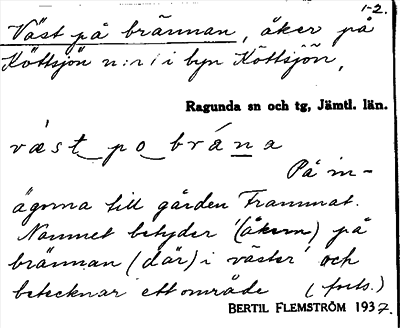 1-2.
Väst på brännan, åker på
Köttsjön n:r 1 i byn Köttsjön,
Ragunda sn och tg, Jämtl. län.
væst po bràna
På in-
ägorna till gården Frammat.
Namnet betyder '(åkern) på
brännan (där) i väster' och
betecknar ett område (forts.)
BERTIL FLEMSTRÖM 1937.